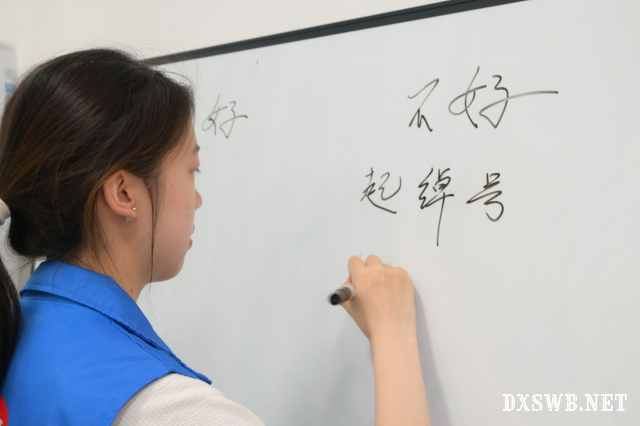 好 不好
起绰号
DXSWB.NET